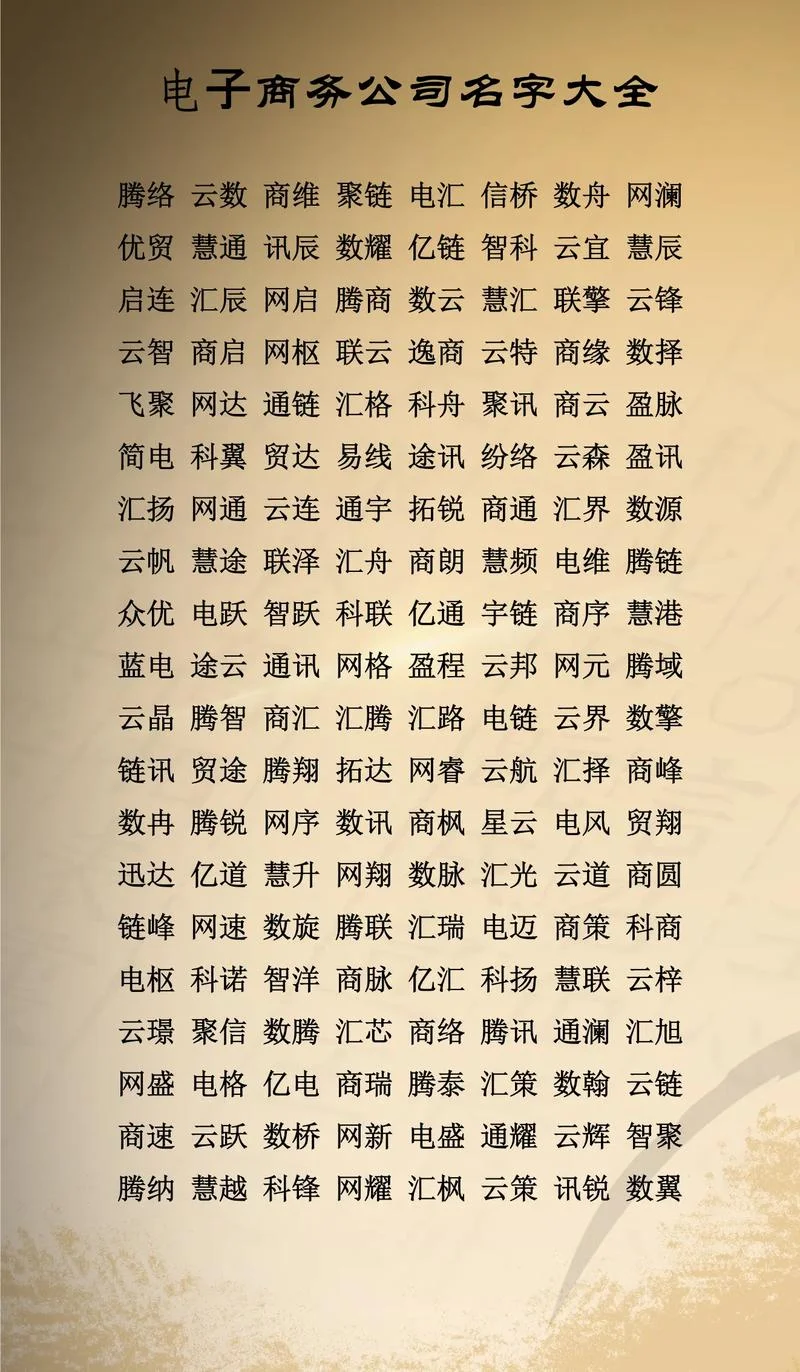 电子商务公司名字大全
腾络 云数 商维 聚链 电汇 信桥 数舟 网澜
优贸 慧通 讯辰 数耀 亿链 智科 云宜 慧辰
启连 汇辰 网启 腾商 数云 慧汇 联擎 云锋
云智 商启 网枢 联云 逸商 云特 商缘 数择
飞聚 网达 通链 汇格 科舟 聚讯 商云 盈脉
简电 科翼 贸达 易线 途讯 纷络 云森 盈讯
汇扬 网通 云连 通宇 拓锐 商通 汇界 数源
云帆 慧途 联泽 汇舟 商朗 慧频 电维 腾链
众优 电跃 智跃 科联 亿通 宇链 商序 慧港
蓝电 途云 通讯 网格 盈程 云邦 网元 腾域
云晶 腾智 商汇 汇腾 汇路 电链 云界 数擎
链讯 贸途 腾翔 拓达 网睿 云航 汇择 商峰
数冉 腾锐 网序 数讯 商枫 星云 电风 贸翔
迅达 亿道 慧升 网翔 数脉 汇光 云道 商圆
链峰 网速 数旋 腾联 汇瑞 电迈 商策 科商
电枢 科诺 智洋 商脉 亿汇 科扬 慧联 云梓
云璟 聚信 数腾 汇芯 商络 腾讯 通澜 汇旭
网盛 电格 亿电 商瑞 腾泰 汇策 数翰 云链
商速 云跃 数桥 网新 电盛 通耀 云辉 智聚
腾纳 慧越 科锋 网耀 汇枫 云策 讯锐 数翼